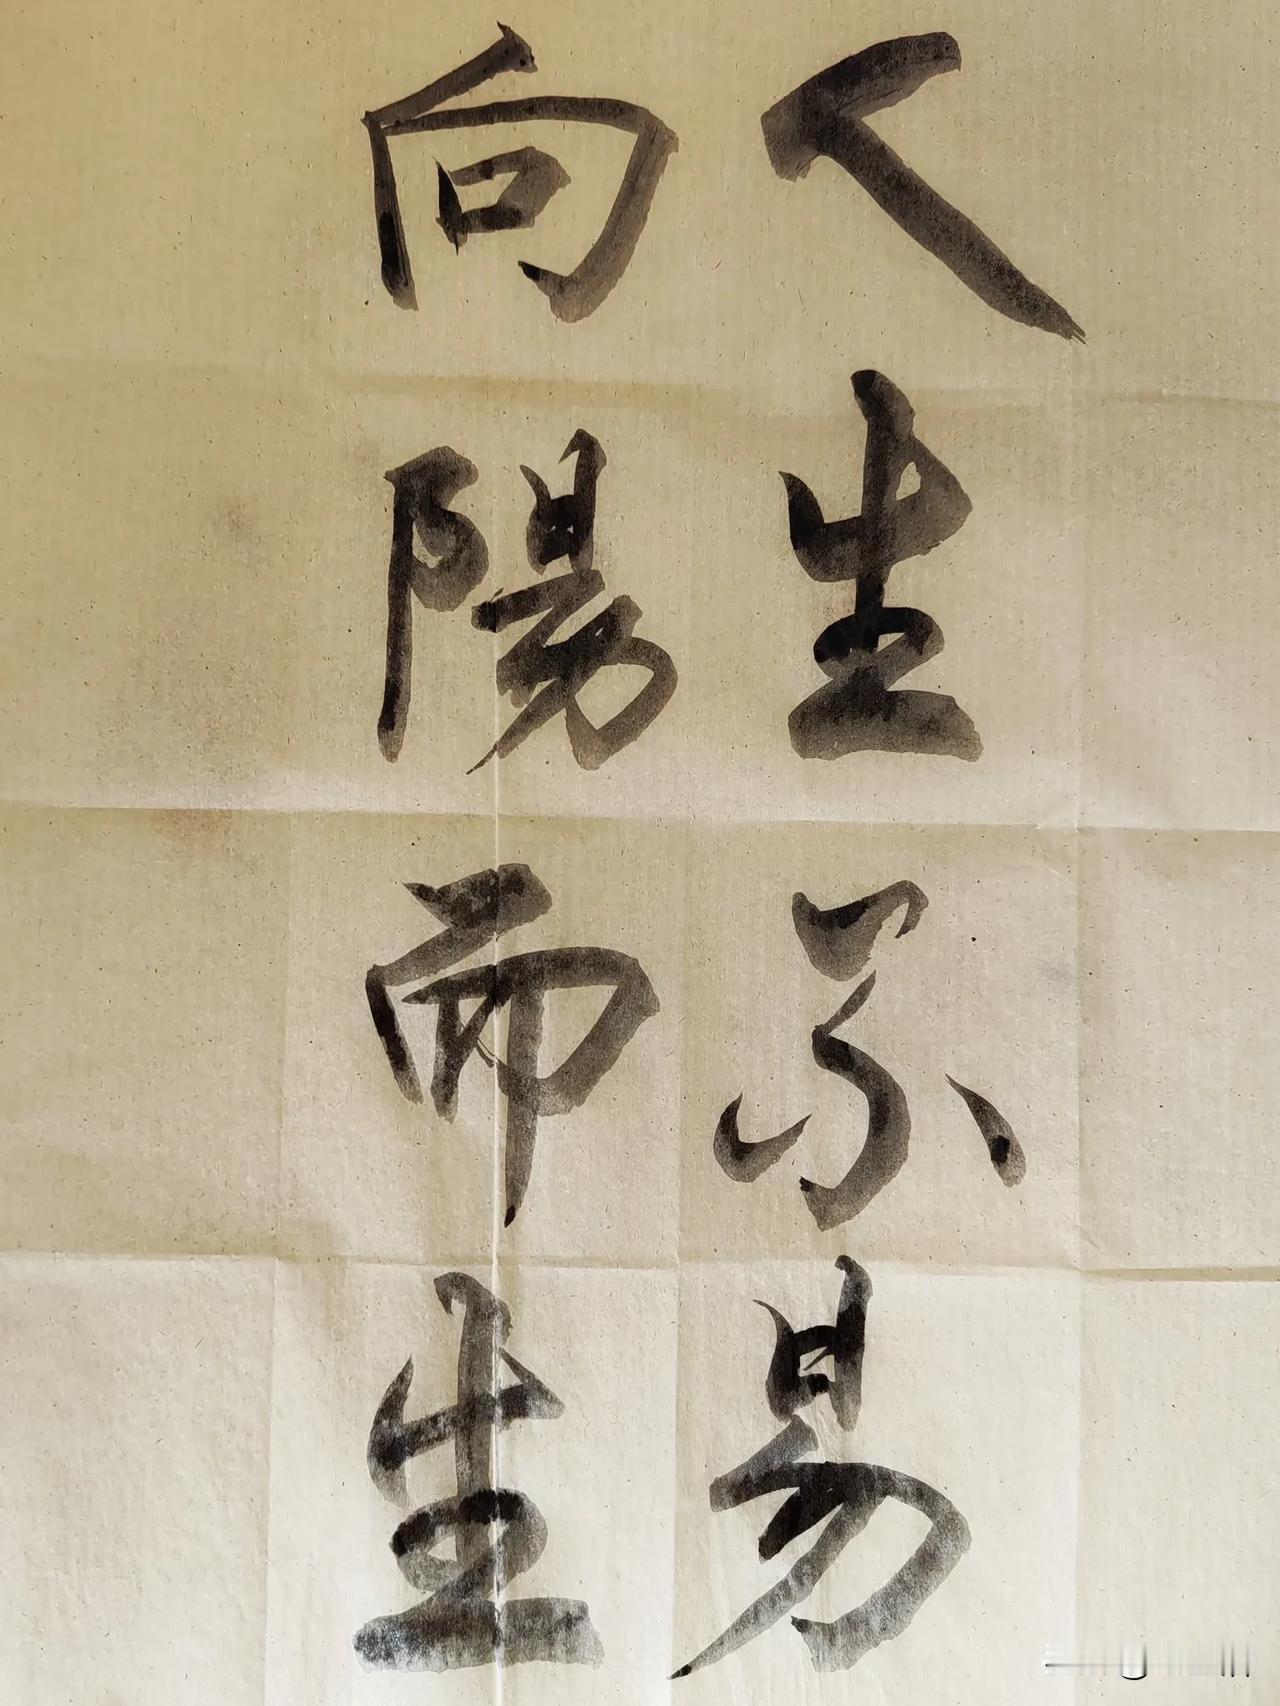 人生不易
向陽而生